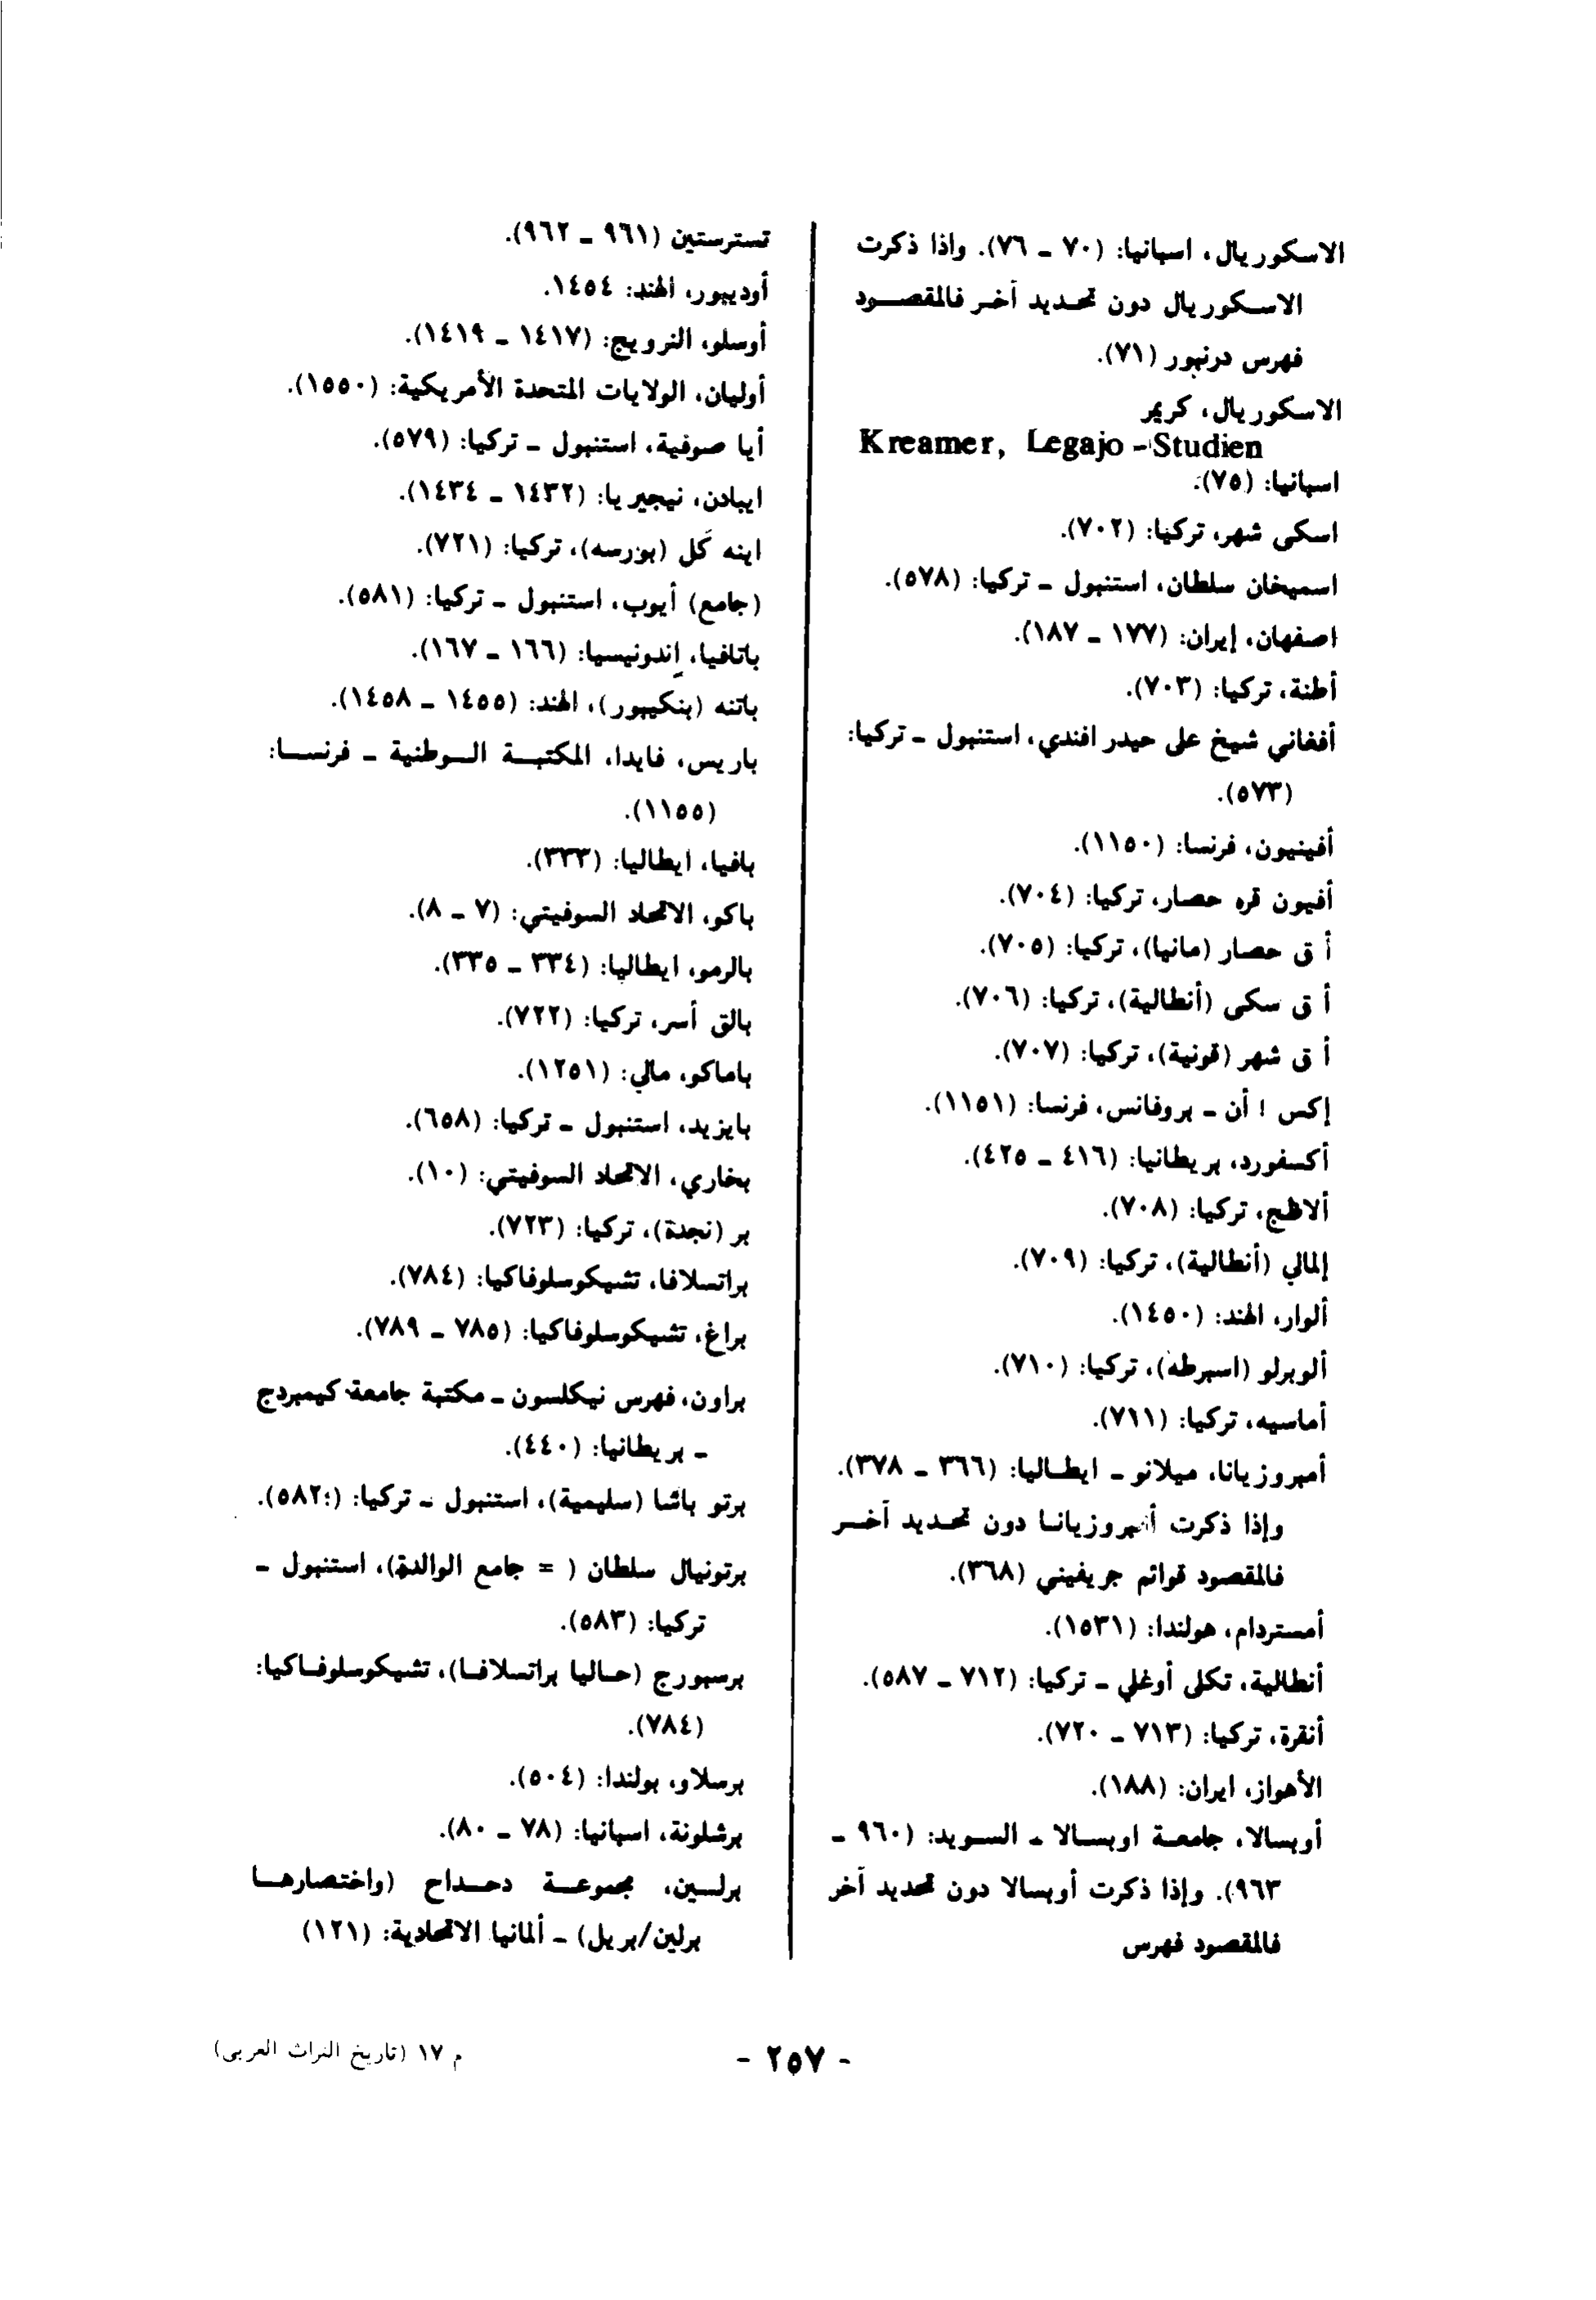 الاسكوريال، اسبانيا: (٧٠ ـ ٧٦). واذا ذكرت
الاسكوريال دون تحديد آخر فالمقصود
فهرس درنبور (٧١).
الاسكوريال، كريمر
Kreamer, Legajo - Studien
اسبانيا: (٧٥).
اسكى شهر، تركيا: (٧٠٢).
اسميخان سلطان، استنبول ـ تركيا: (٥٧٨).
اصفهان، إيران: (١٧٧ ـ ١٨٧).
أطنة، تركيا: (٧٠٣).
أفغاني شيخ على حيدر افندي، استنبول ـ تركيا:
(٥٧٣).
أفينيون، فرنسا: (١١٥٠).
أفيون قره حصار، تركيا: (٧٠٤).
أ ق حصار (مانيا)، تركيا: (٧٠٥).
أ ق سكى (أنطالية)، تركيا: (٧٠٦).
أ ق شهر (قونية)، تركيا: (٧٠٧).
إكس ! أن ـ بروفانس، فرنسا: (١١٥١).
أكسفورد، بريطانيا: (٤١٦ ـ ٤٢٥).
ألاظج، تركيا: (٧٠٨).
إلمالي (أنطالية)، تركيا: (٧٠٩).
ألوار، الهند: (١٤٥٠).
ألوبرلو (اسبرطة)، تركيا: (٧١٠).
أماسيه، تركيا: (٧١١).
أمبروزيانا، ميلانو ـ ايطاليا: (٣٦٦ ـ ٣٧٨).
وإذا ذكرت أمبروزيانا دون تحديد آخر
فالمقصود قوائم جريفيني (٣٦٨).
أمستردام، هولندا: (١٥٣١).
أنطالية، تكلى أوغلي ـ تركيا: (٧١٢ ـ ٥٨٧).
أنقرة، تركيا: (٧١٣ ـ ٧٢٠).
الأهواز، ايران: (١٨٨).
أوبسالا، جامعة اوبسالا ـ السويد: (٩٦٠ ـ
٩٦٣). وإذا ذكرت أوبسالا دون تحديد آخر
فالمقصود فهرس
تسترستين (٩٦١ ـ ٩٦٢).
أوديبور، الهند: ١٤٥٤.
أوسلو، النرويج: (١٤١٧ ـ ١٤١٩).
أوليان، الولايات المتحدة الأمريكية: (١٥٥٠).
أيا صوفية، استنبول ـ تركيا: (٥٧٩).
ايبادن، نيجيريا: (١٤٣٢ ـ ١٤٣٤).
اينه كل (بورسه)، تركيا: (٧٢١).
(جامع) أيوب، استنبول ـ تركيا: (٥٨١).
باتافيا، إندونيسيا: (١٦٦ ـ ١٦٧).
باتنه (بنكيبور)، الهند: (١٤٥٥ ـ ١٤٥٨).
باريس، فايدا، المكتبة الوطنية ـ فرنسا:
(١١٥٥).
بافيا، ايطاليا: (٣٣٣).
باكو، الاتحاد السوفيتي: (٧ ـ ٨).
بالرمو، ايطاليا: (٣٣٤ ـ ٣٣٥).
بالق أسر، تركيا: (٧٢٢).
باماكو، مالي: (١٢٥١).
بايزيد، استنبول ـ تركيا: (٦٥٨).
بخاري، الاتحاد السوفيتي: (١٠).
بر (نجدة)، تركيا: (٧٢٣).
براتسلافا، تشيكوسلوفاكيا: (٧٨٤).
براغ، تشيكوسلوفاكيا: (٧٨٥ ـ ٧٨٩).
براون، فهرس نيكلسون ـ مكتبة جامعة كيمبردج
ـ بريطانيا: (٤٤٠).
برتو باشا (سليمية)، استنبول ـ تركيا: (٥٨٢).
برتونيال سلطان ( = جامع الوالدة)، استنبول ـ
تركيا: (٥٨٣).
برسبورج (حاليا براتسلافا)، تشيكوسلوفاكيا:
(٧٨٤).
برسلاو، بولندا: (٥٠٤).
برشلونة، اسبانيا: (٧٨ ـ ٨٠).
برلسين، مجموعة دحداح (واختصارها
برلين/بريل) ـ ألمانيا الاتحادية: (١٢١)
- ٢٥٧ -
م ١٧ (تاريخ التراث العربى)